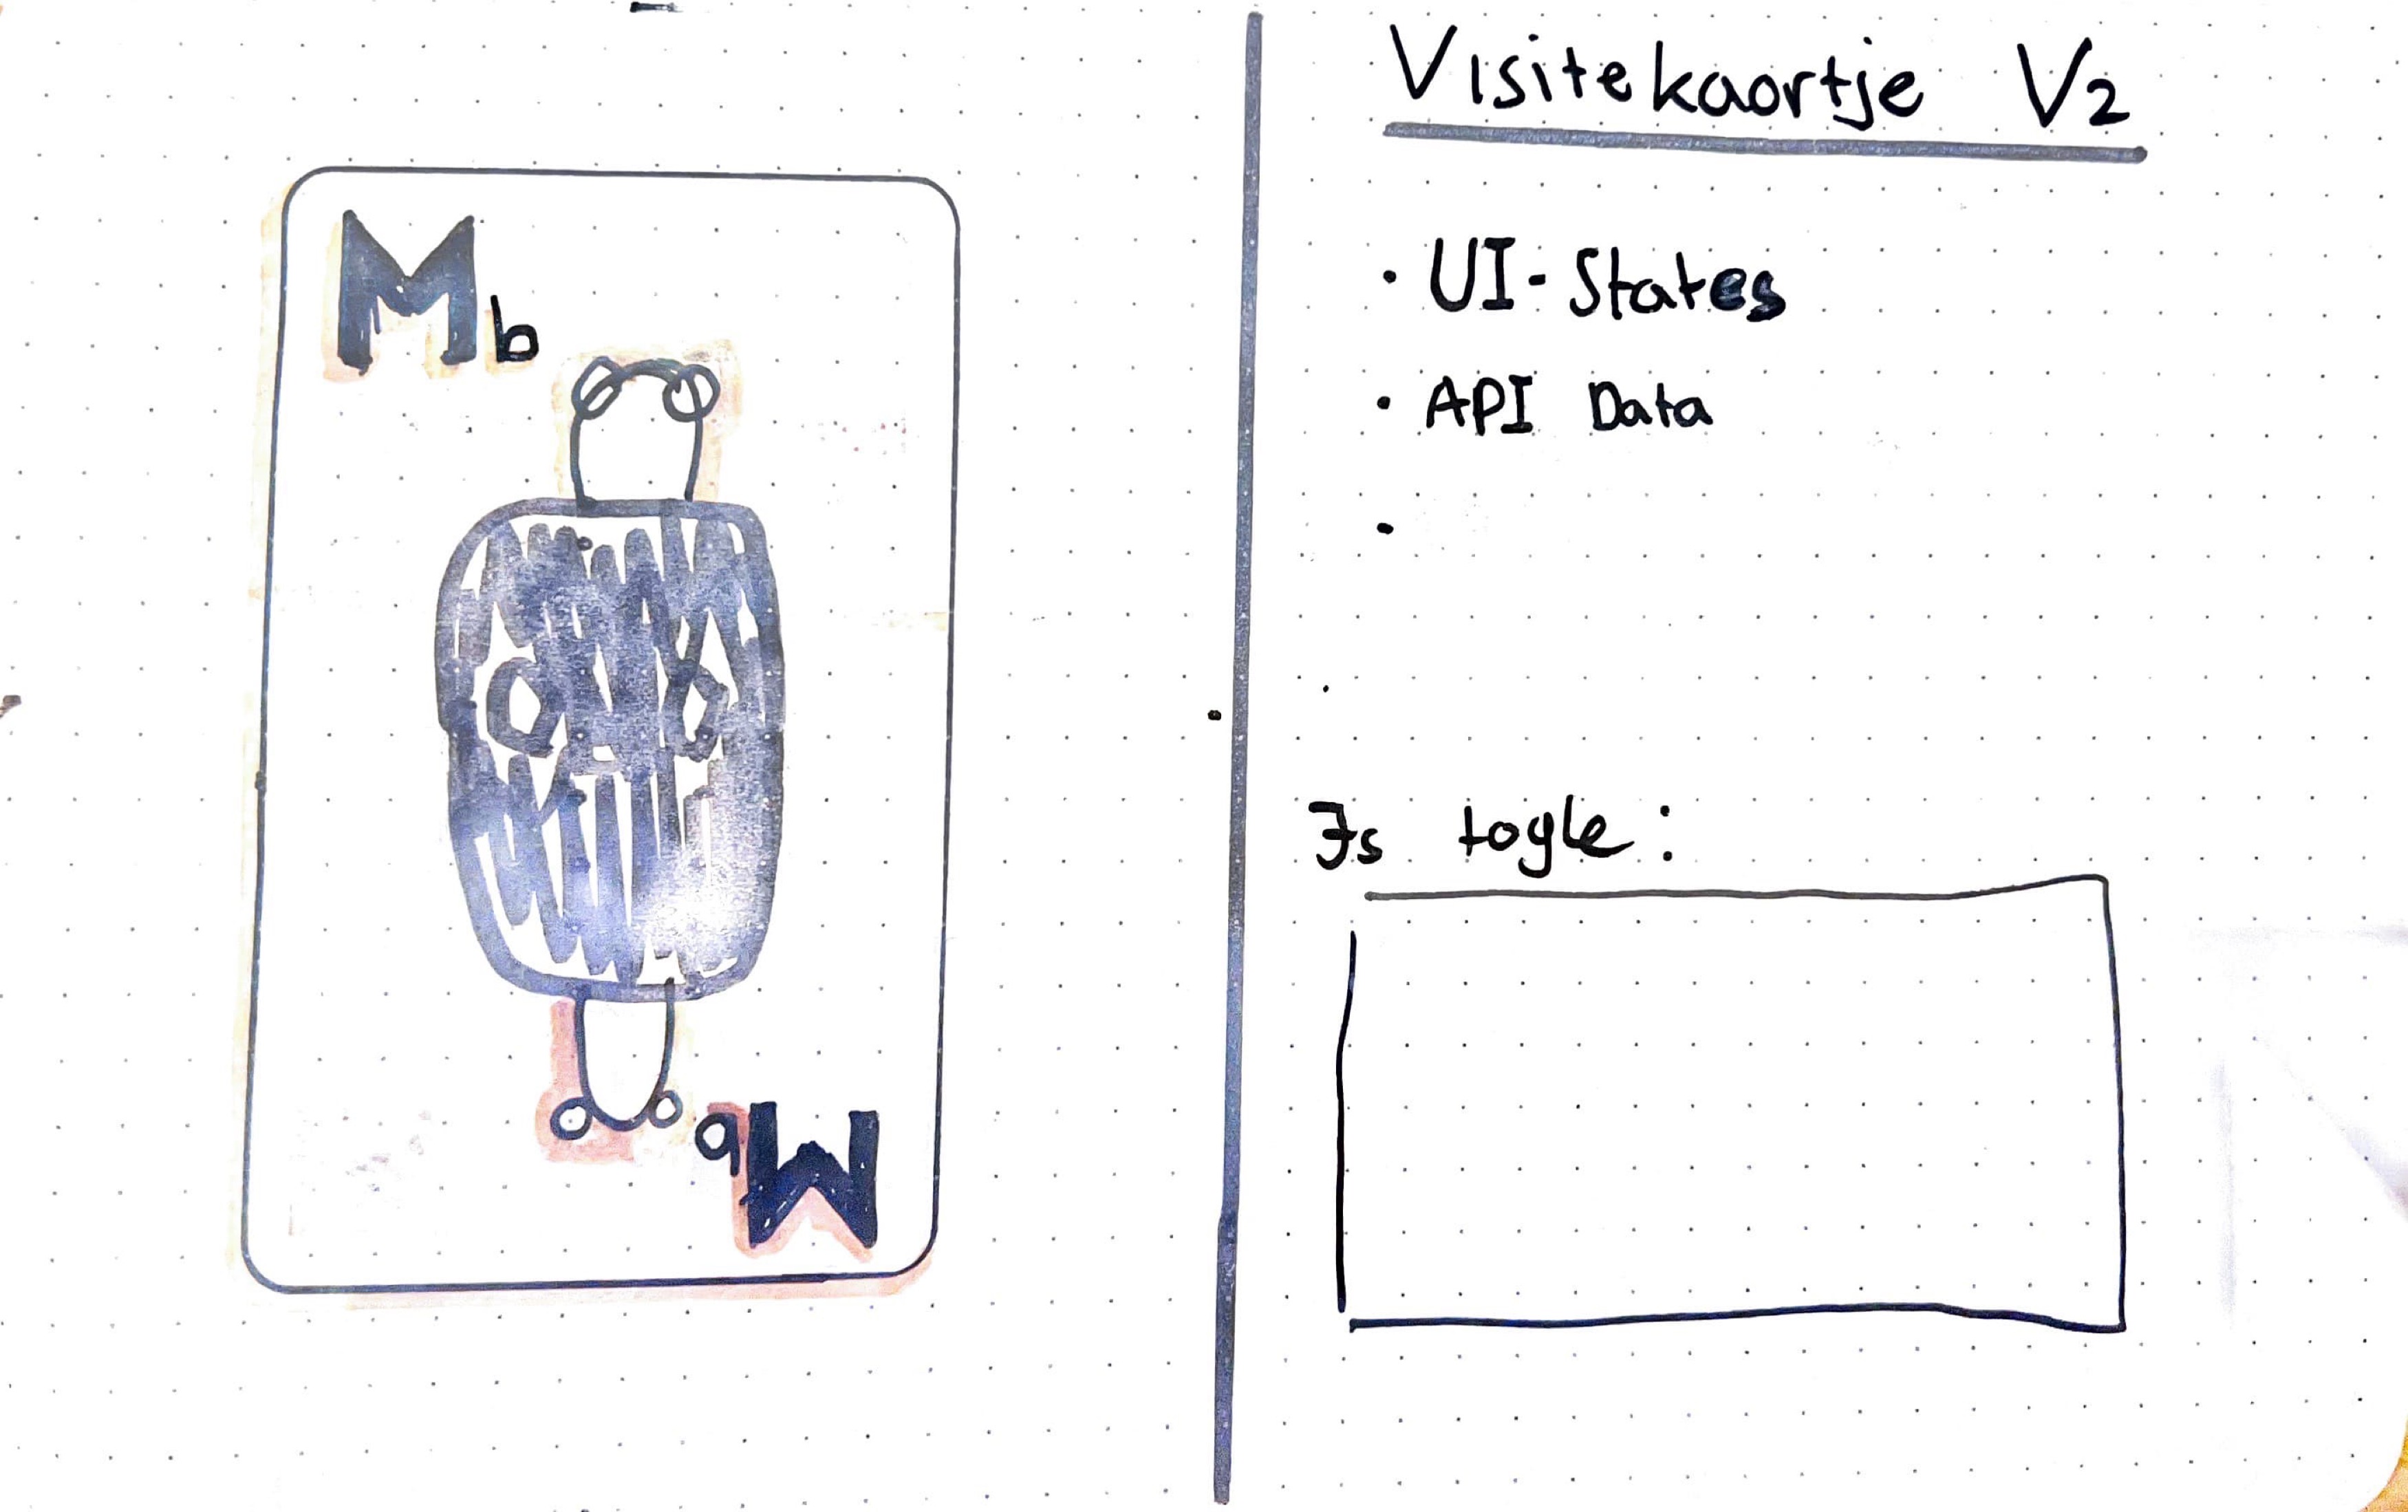 Mb
Mb
Visitekaartje V2
· UI-States
· API Data
·
Js togle: